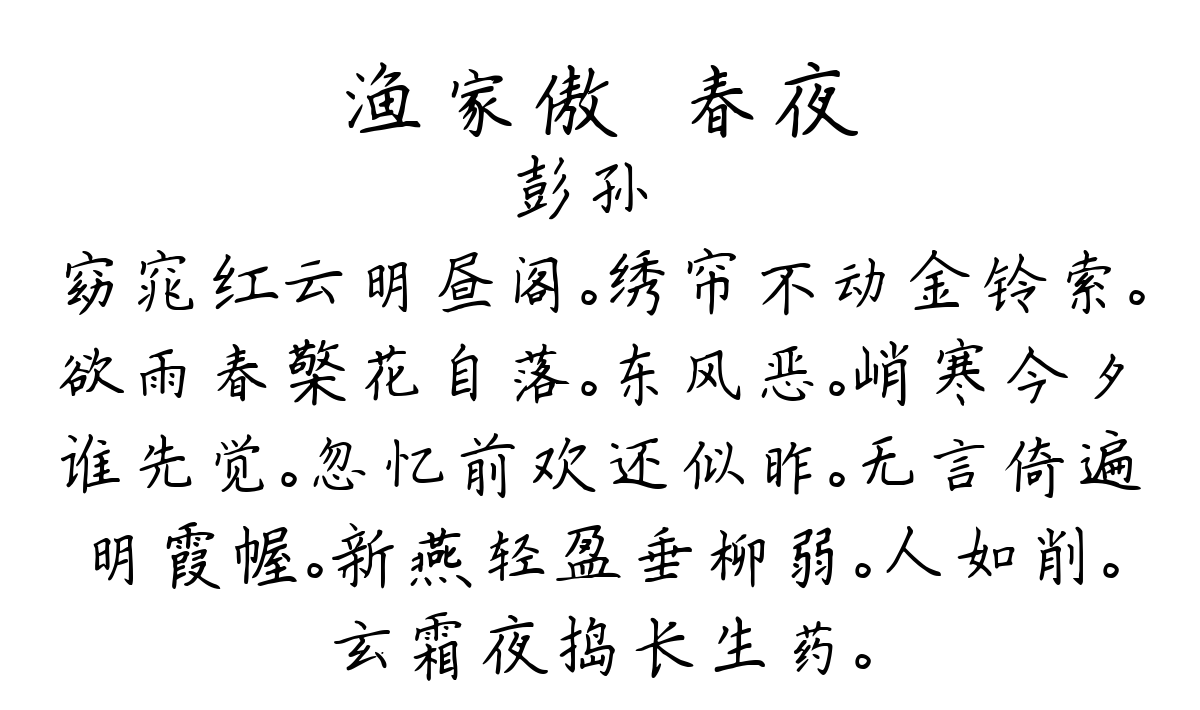 渔家傲 春夜
彭孙
窈窕红云明昼阁。绣帘不动金铃索。
欲雨春檠花自落。东风恶。峭寒今夕
谁先觉。忽忆前欢还似昨。无言倚遍
明霞幄。新燕轻盈垂柳弱。人如削。
玄霜夜捣长生药。